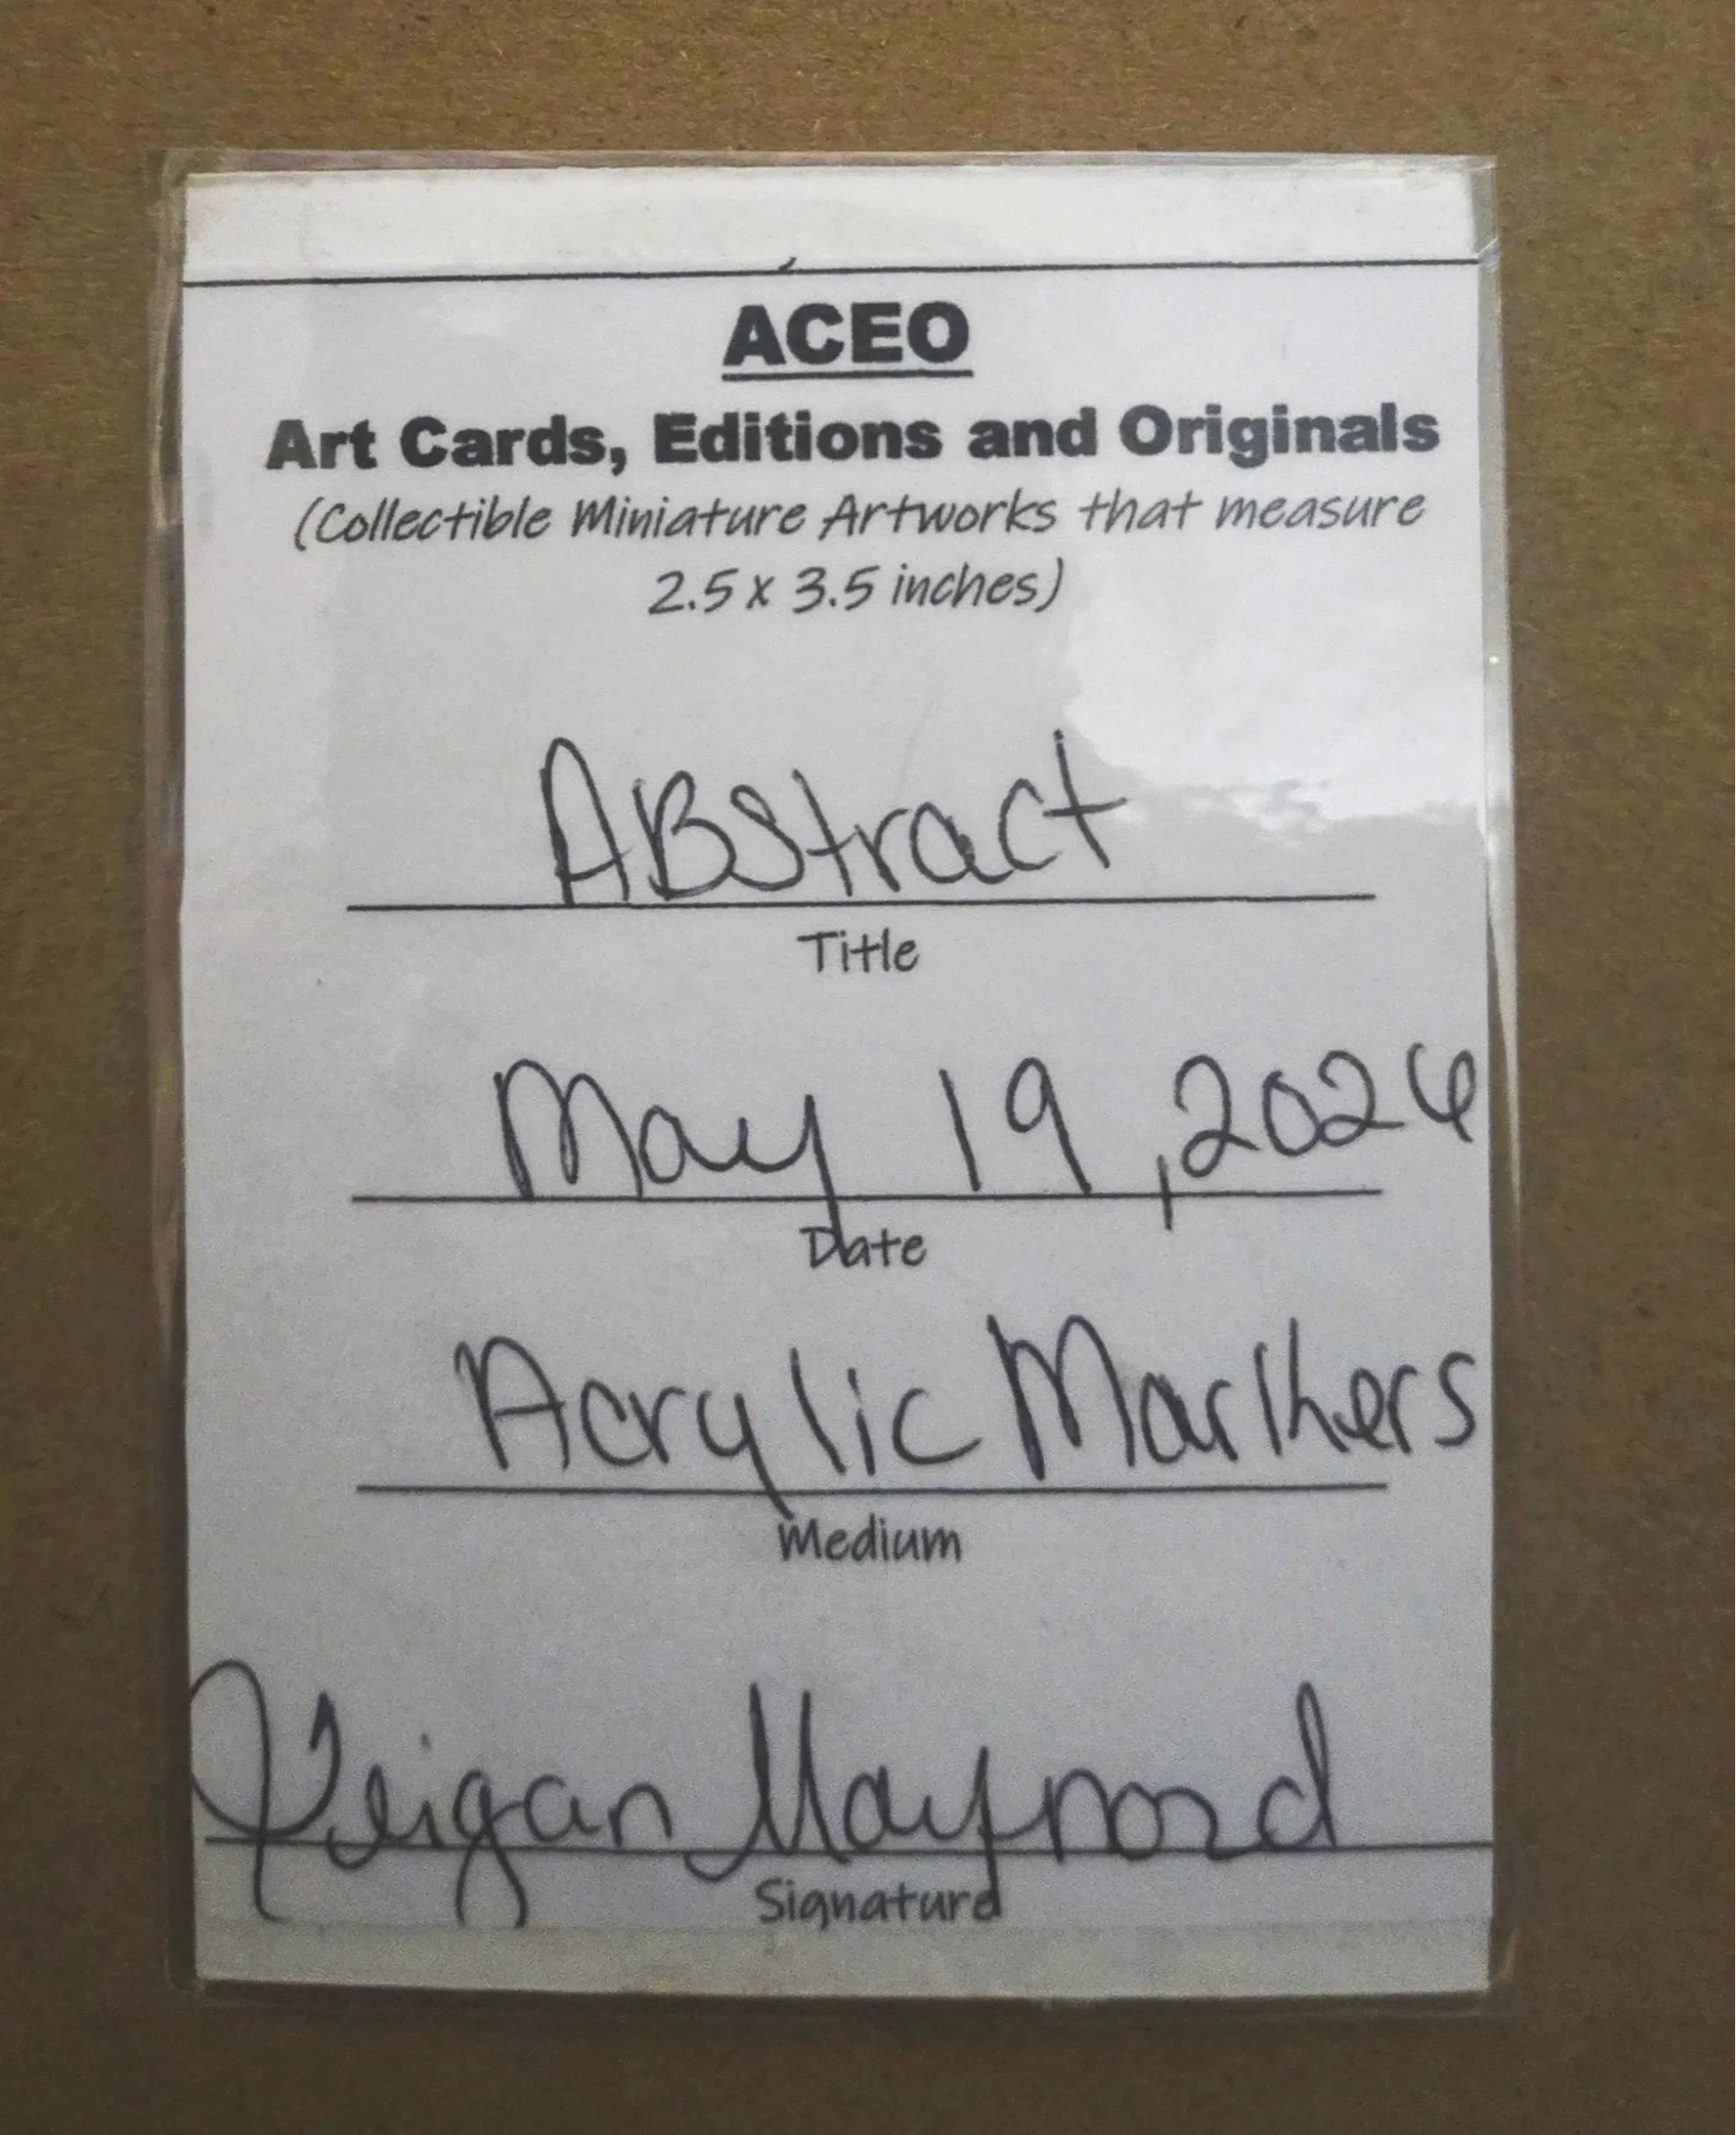 ACEO
Art Cards, Editions and Originals
(Collectible Miniature Artworks that measure
2.5 x 3.5 inches)
ABstract
Title
May 19, 202
Date
Acrylic Markers
Medium
Keigan Maynard
Signature